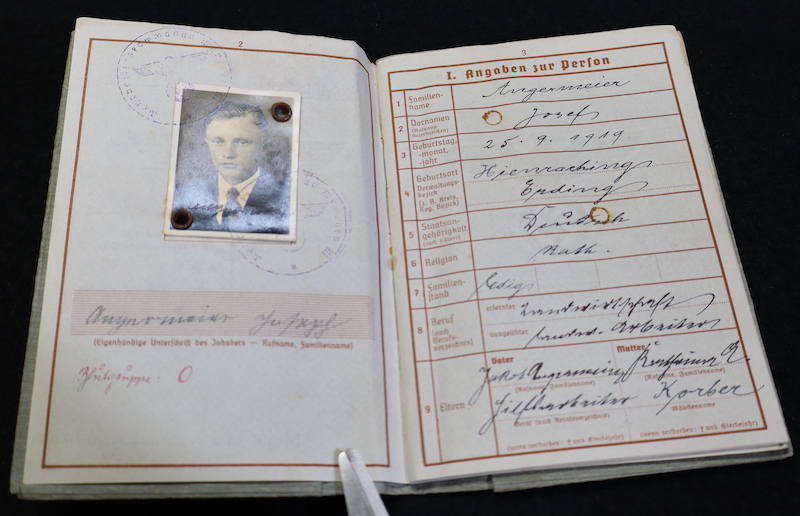 2
Angermeier Joseph
(Eigenhändige Unterschrift des Inhabers — Rufname, Familienname)
Blutgruppe: O
3
I. Angaben zur Person
1 Familien-
name
Angermeier
2 Vornamen
(Rufname
unterstreichen)
Josef
3 Geburtstag,
-monat,
-jahr
25. 9. 1919
4 Geburtsort
Verwaltungs-
bezirk
(z. B. Kreis,
Reg. Bezirk)
Erding
5 Staatsan-
gehörigkeit
Deutsch
6 Religion
Kath.
7 Familien-
stand
ledig
8 Beruf
(nach
Berufs-
verzeichnis)
erlernter Landwirtschaft
ausgeübter landw. Arbeiter
9 Eltern
Vater
Mutter
Jakob Angermeier
(Rufname, Familienname)
(Rufname, Familienname)
Hilfsarbeiter
Korber
Beruf (nach Berufsverzeichnis)
Mädchenname
(wenn verstorben: † und Sterbejahr)
(wenn verstorben: † und Sterbejahr)